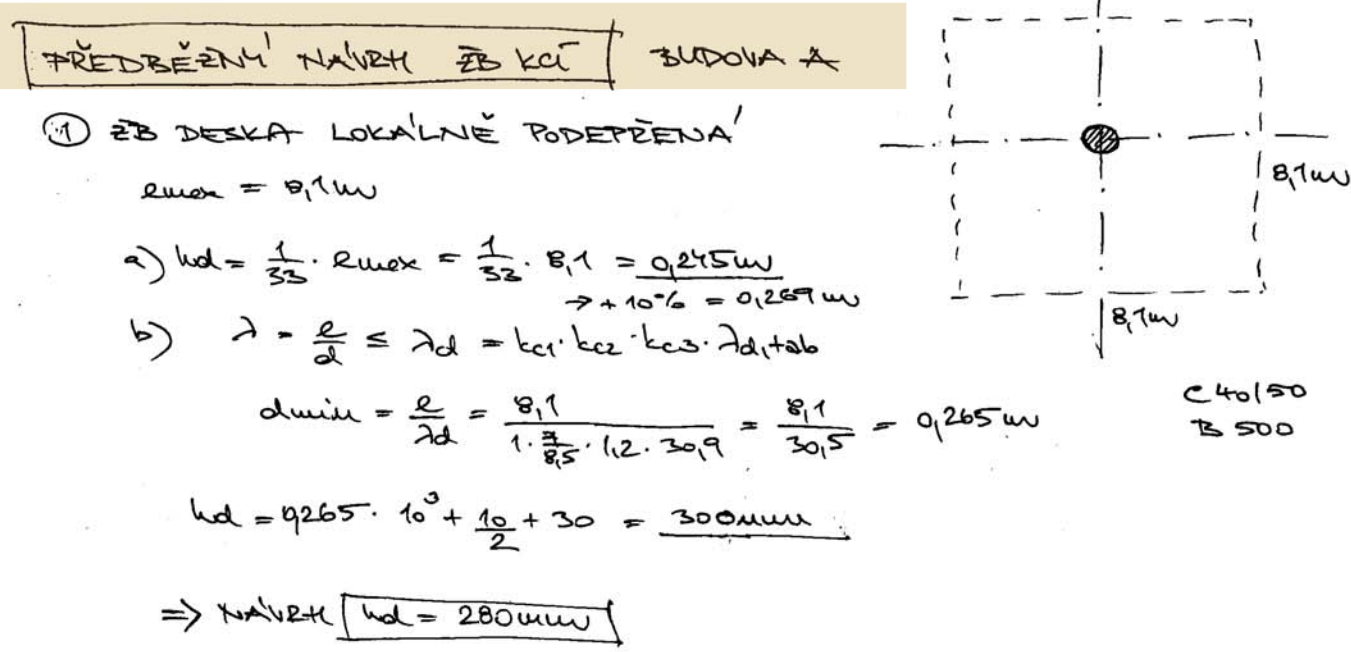 PŘEDBĚŽNÝ NÁVRH ŽB KCÍ BUDOVA A
① ŽB DESKA LOKÁLNĚ PODEPŘENÁ
lmax = 8,1m
a) hd = 1/33 · lmax = 1/33 · 8,1 = 0,245m
→ + 10% = 0,269m
b) λ = l/d ≤ λd = kc1 · kc2 · kc3 · λd,tab
dmin = l/λd = 8,1/(1 · 7/8,5 · 1,2 · 30,9) = 8,1/30,5 = 0,265m
hd = 0,265 · 10³ + 10/2 + 30 = 300mm
⇒ NÁVRH hd = 280mm
8,1m
8,1m
C 40/50
B 500